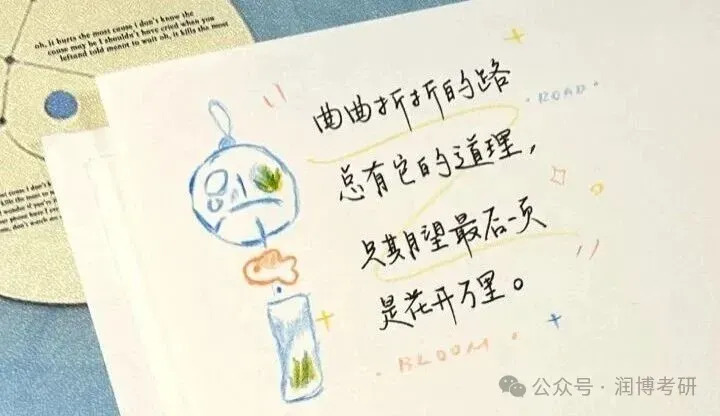 oh, it hurts the most cause i don't know the
cause may be I shouldn't have cried when you
leftand told menot to wait oh, it kills the most
曲曲折折的路
ROAD
总有它的道理，
只期望最后一页
是花开万里。
BLOOM
公众号·润博考研